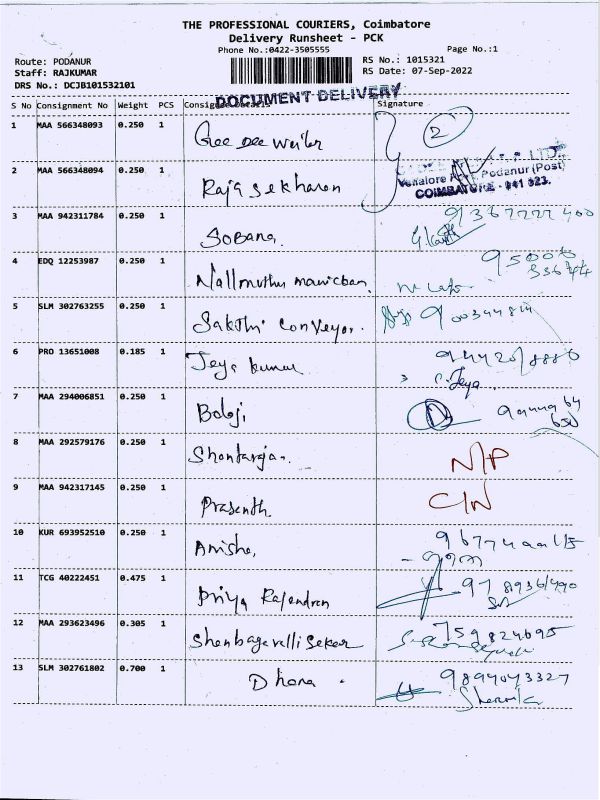 THE PROFESSIONAL COURIERS, Coimbatore
Delivery Runsheet - PCK
Phone No.:0422-3505555
Page No.:1
Route: PODANUR
RS No.: 1015321
Staff: RAJKUMAR
RS Date: 07-Sep-2022
DRS No.: DCJB101532101
DOCUMENT DELIVERY
S No Consignment No Weight PCS Consignee Details Signature
1 MAA 566348093 0.250 1 Gee Dee Weiler 2
2 MAA 566348094 0.250 1 Rajasekharan
LTD.
Vellalore Podanur (Post)
COIMBATORE - 641 023.
3 MAA 942311784 0.250 1 Sobana. 9367222400
4 EDQ 12253987 0.250 1 Nallmuthu manickam 95008
53644
5 SLM 302763255 0.250 1 Sakthi Conveyor.
6 PRO 13651008 0.185 1 Jeya kumar
Jeya
7 MAA 294006851 0.250 1 Balaji
8 MAA 292579176 0.250 1 N/P
9 MAA 942317145 0.250 1 Prasanth C/N
10 KUR 693952510 0.250 1 Anisha,
11 TCG 40222451 0.475 1 Priya Rajendran
12 MAA 293623496 0.305 1 Shenbagavalli Sekar 759824695
13 SLM 302761802 0.700 1 Dhana 9894043327